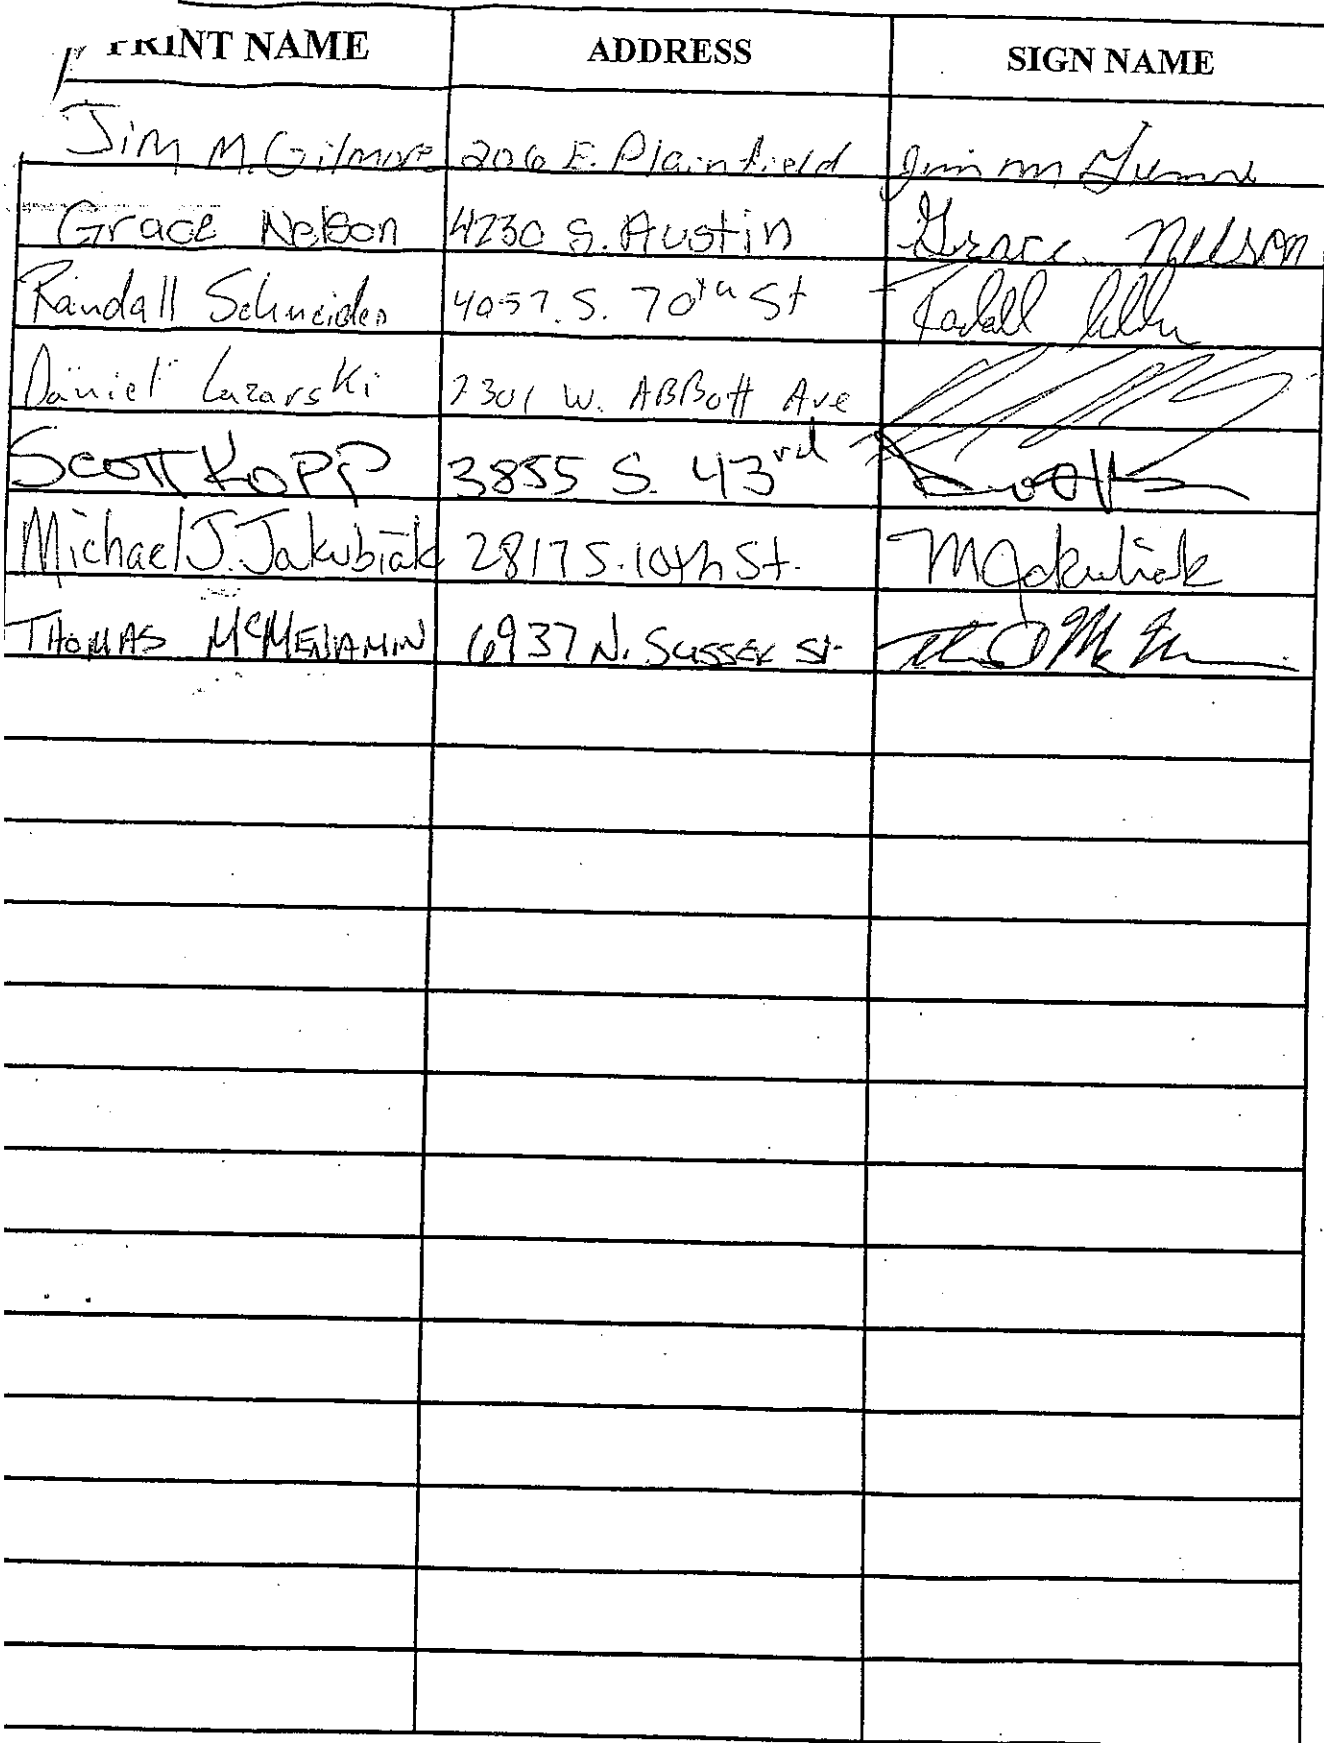 PRINT NAME ADDRESS SIGN NAME
Jim M. Gilmore 206 E. Plainfield Jim M
Grace Nelson 4230 S. Austin Grace Nelson
Randall Schneider 4057 S. 70th St
Daniel Lazarski 2301 W. ABBott Ave
Scott Kopp 3855 S. 43rd
Michael J. Jakubiak 2817 S. 10th St. MJakubiak
THOMAS McMENAMIN 6937 N. SUSSEX St.